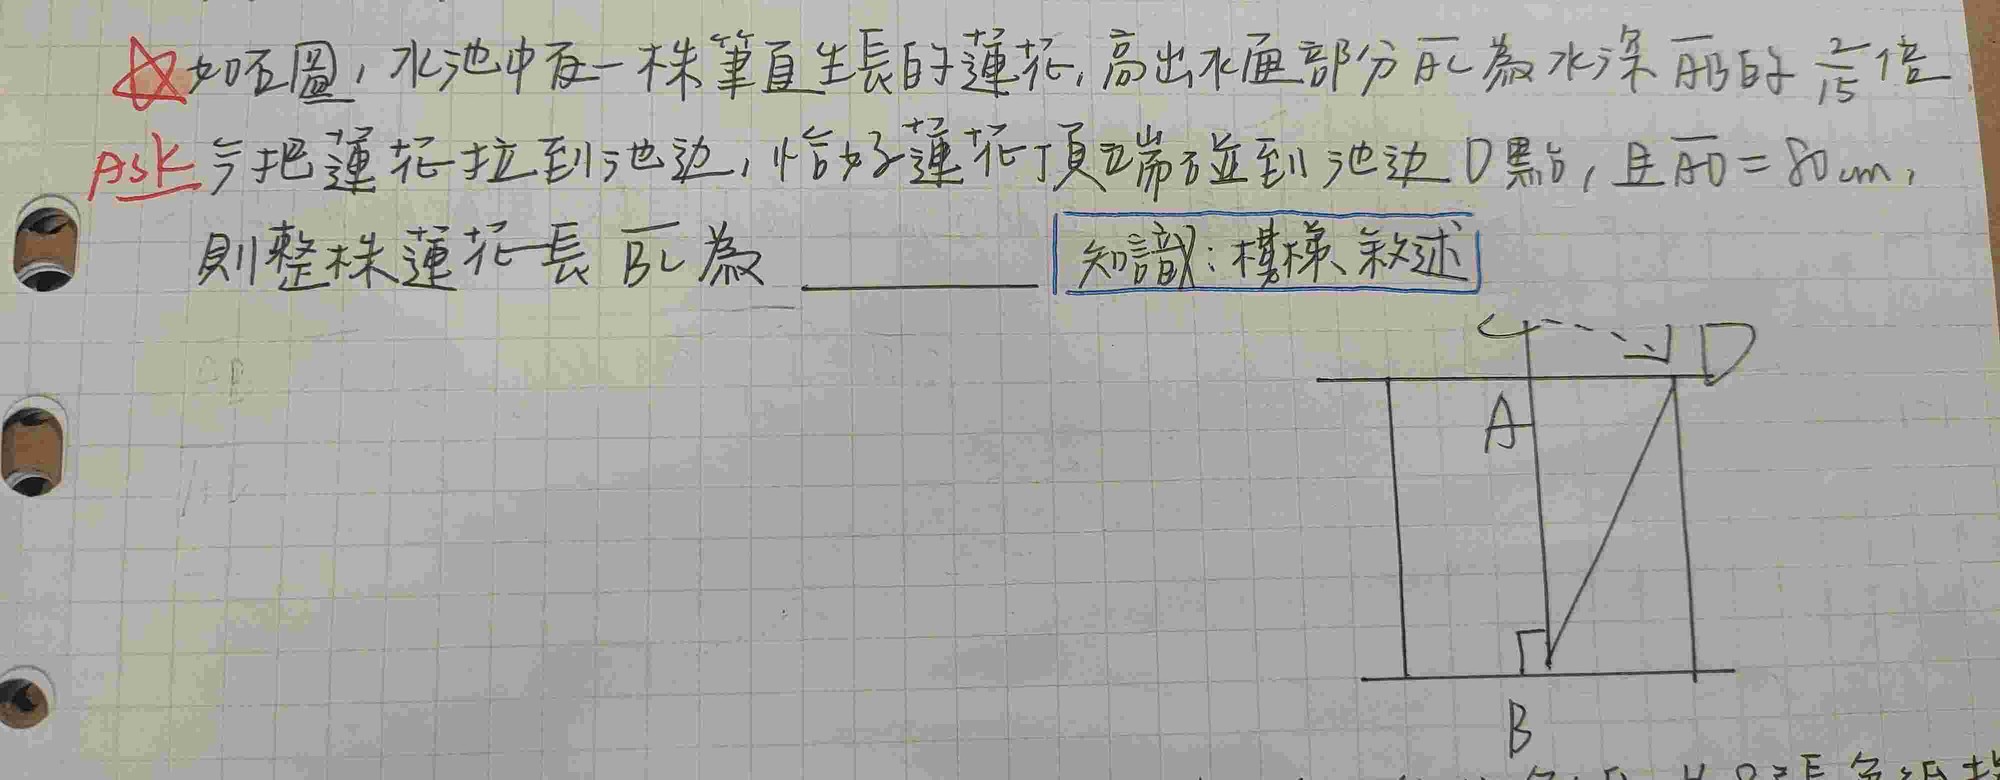 如右圖，水池中有一株筆直生長的蓮花，高出水面部分AC為水深AB的2/15倍
ASK 今把蓮花拉到池边，恰好蓮花頂端碰到池边D點，且AD=80cm，
則整株蓮花長BC為 ______ 知識：樓梯、敘述
C D
A
B